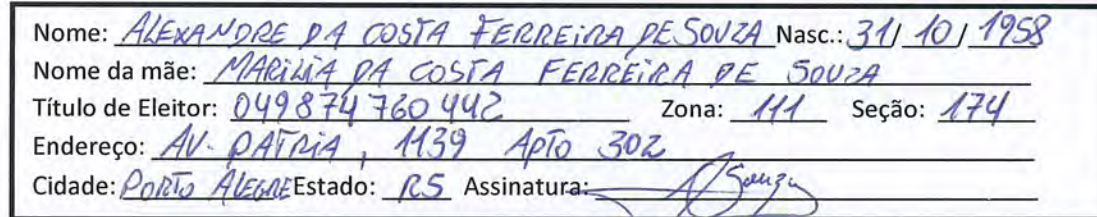 Nome: ALEXANDRE DA COSTA FERREIRA DE SOUZA Nasc.: 31/ 10 / 1958
Nome da mãe: MARILIA DA COSTA FERREIRA DE SOUZA
Título de Eleitor: 049874760442 Zona: 111 Seção: 174
Endereço: AV. PATRIA, 1139 APTO 302
Cidade: PORTO ALEGRE Estado: RS Assinatura: Souza